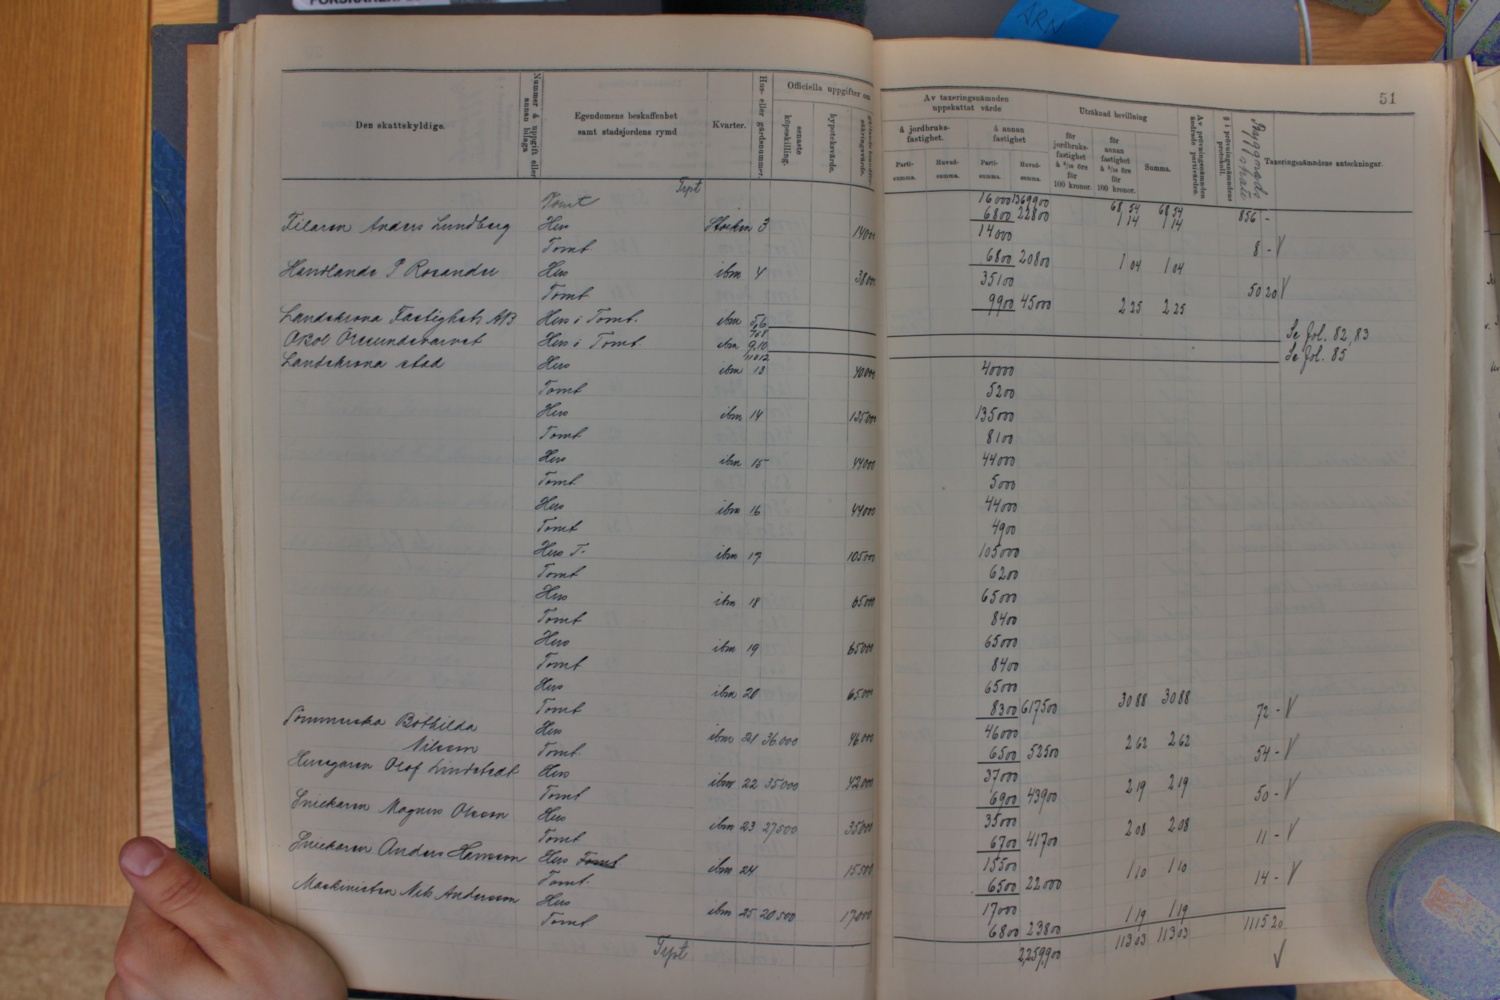 51
Den skattskyldige.
Nummer å uppgift eller annan bilaga
Egendomens beskaffenhet samt stadsjordens rymd
Kvarter.
Hus- eller gårdsnummer.
Officiella uppgifter om
senaste köpeskilling.
hypoteksvärde.
Av taxeringsnämnden uppskattat värde
å jordbruksfastighet.
å annan fastighet
Parti-summa.
Huvud-summa.
Parti-summa.
Huvud-summa.
Uträknad bevillning
för jordbruksfastighet
för 100 kronor.
för annan fastighet
för 100 kronor.
Summa.
Av prövningsnämnden
§ i prövningsnämndens protokoll.
Byggnads
Taxeringsnämndens anteckningar.
Tspt 1369900 68 54 68 54 856 -
Filaren Anders Lundberg Hus Stocken 3 14000 16000
Tomt 6800 22800 1 14 1 14
Handlande P Rosander Hus ibm 4 14000
Tomt 6800 20800 1 04 1 04 8 - V
Hus 38000 35100
Tomt 9900 45000 2 25 2 25 50 20 V
Landskrona Fastighets AB Hus i Tomt. ibm 5,6 Se fol. 82,83
Öresundsvarvet Hus i Tomt ibm 9,10 Se fol. 85
Landskrona stad Hus ibm 13 40000 40000
Tomt 5200
Hus ibm 14 135000 135000
Tomt 8100
Hus ibm 15 44000 44000
Tomt 5000
Hus ibm 16 44000 44000
Tomt 4900
Hus T. ibm 17 105000 105000
Tomt 6200
Hus ibm 18 65000 65000
Tomt 8400
Hus ibm 19 65000 65000
Tomt 8400
Hus ibm 20 65000 65000
Tomt 8300 617500 30 88 30 88 72 - V
Bothilda Nilsson Hus ibm 21 36.000 46000 46000
Tomt 6500 52500 2 62 2 62 54 - V
Olof Lindstedt Hus ibm 22 35000 42000 37000
Tomt 6900 43900 2 19 2 19 50 - V
Snickaren Magnus Olsson Hus ibm 23 27500 35000 35000
Tomt 6700 41700 2 08 2 08 11 - V
Snickaren Anders Hansson Hus Tomt ibm 24 15500 15500
Tomt. 6500 22000 1 10 1 10 14 - V
Maskinisten Nils Andersson Hus ibm 25 20.500 17000 17000
Tomt 6800 23800 1 19 1 19
Tspt 2,259,900 113 03 113 03 1115 20 V